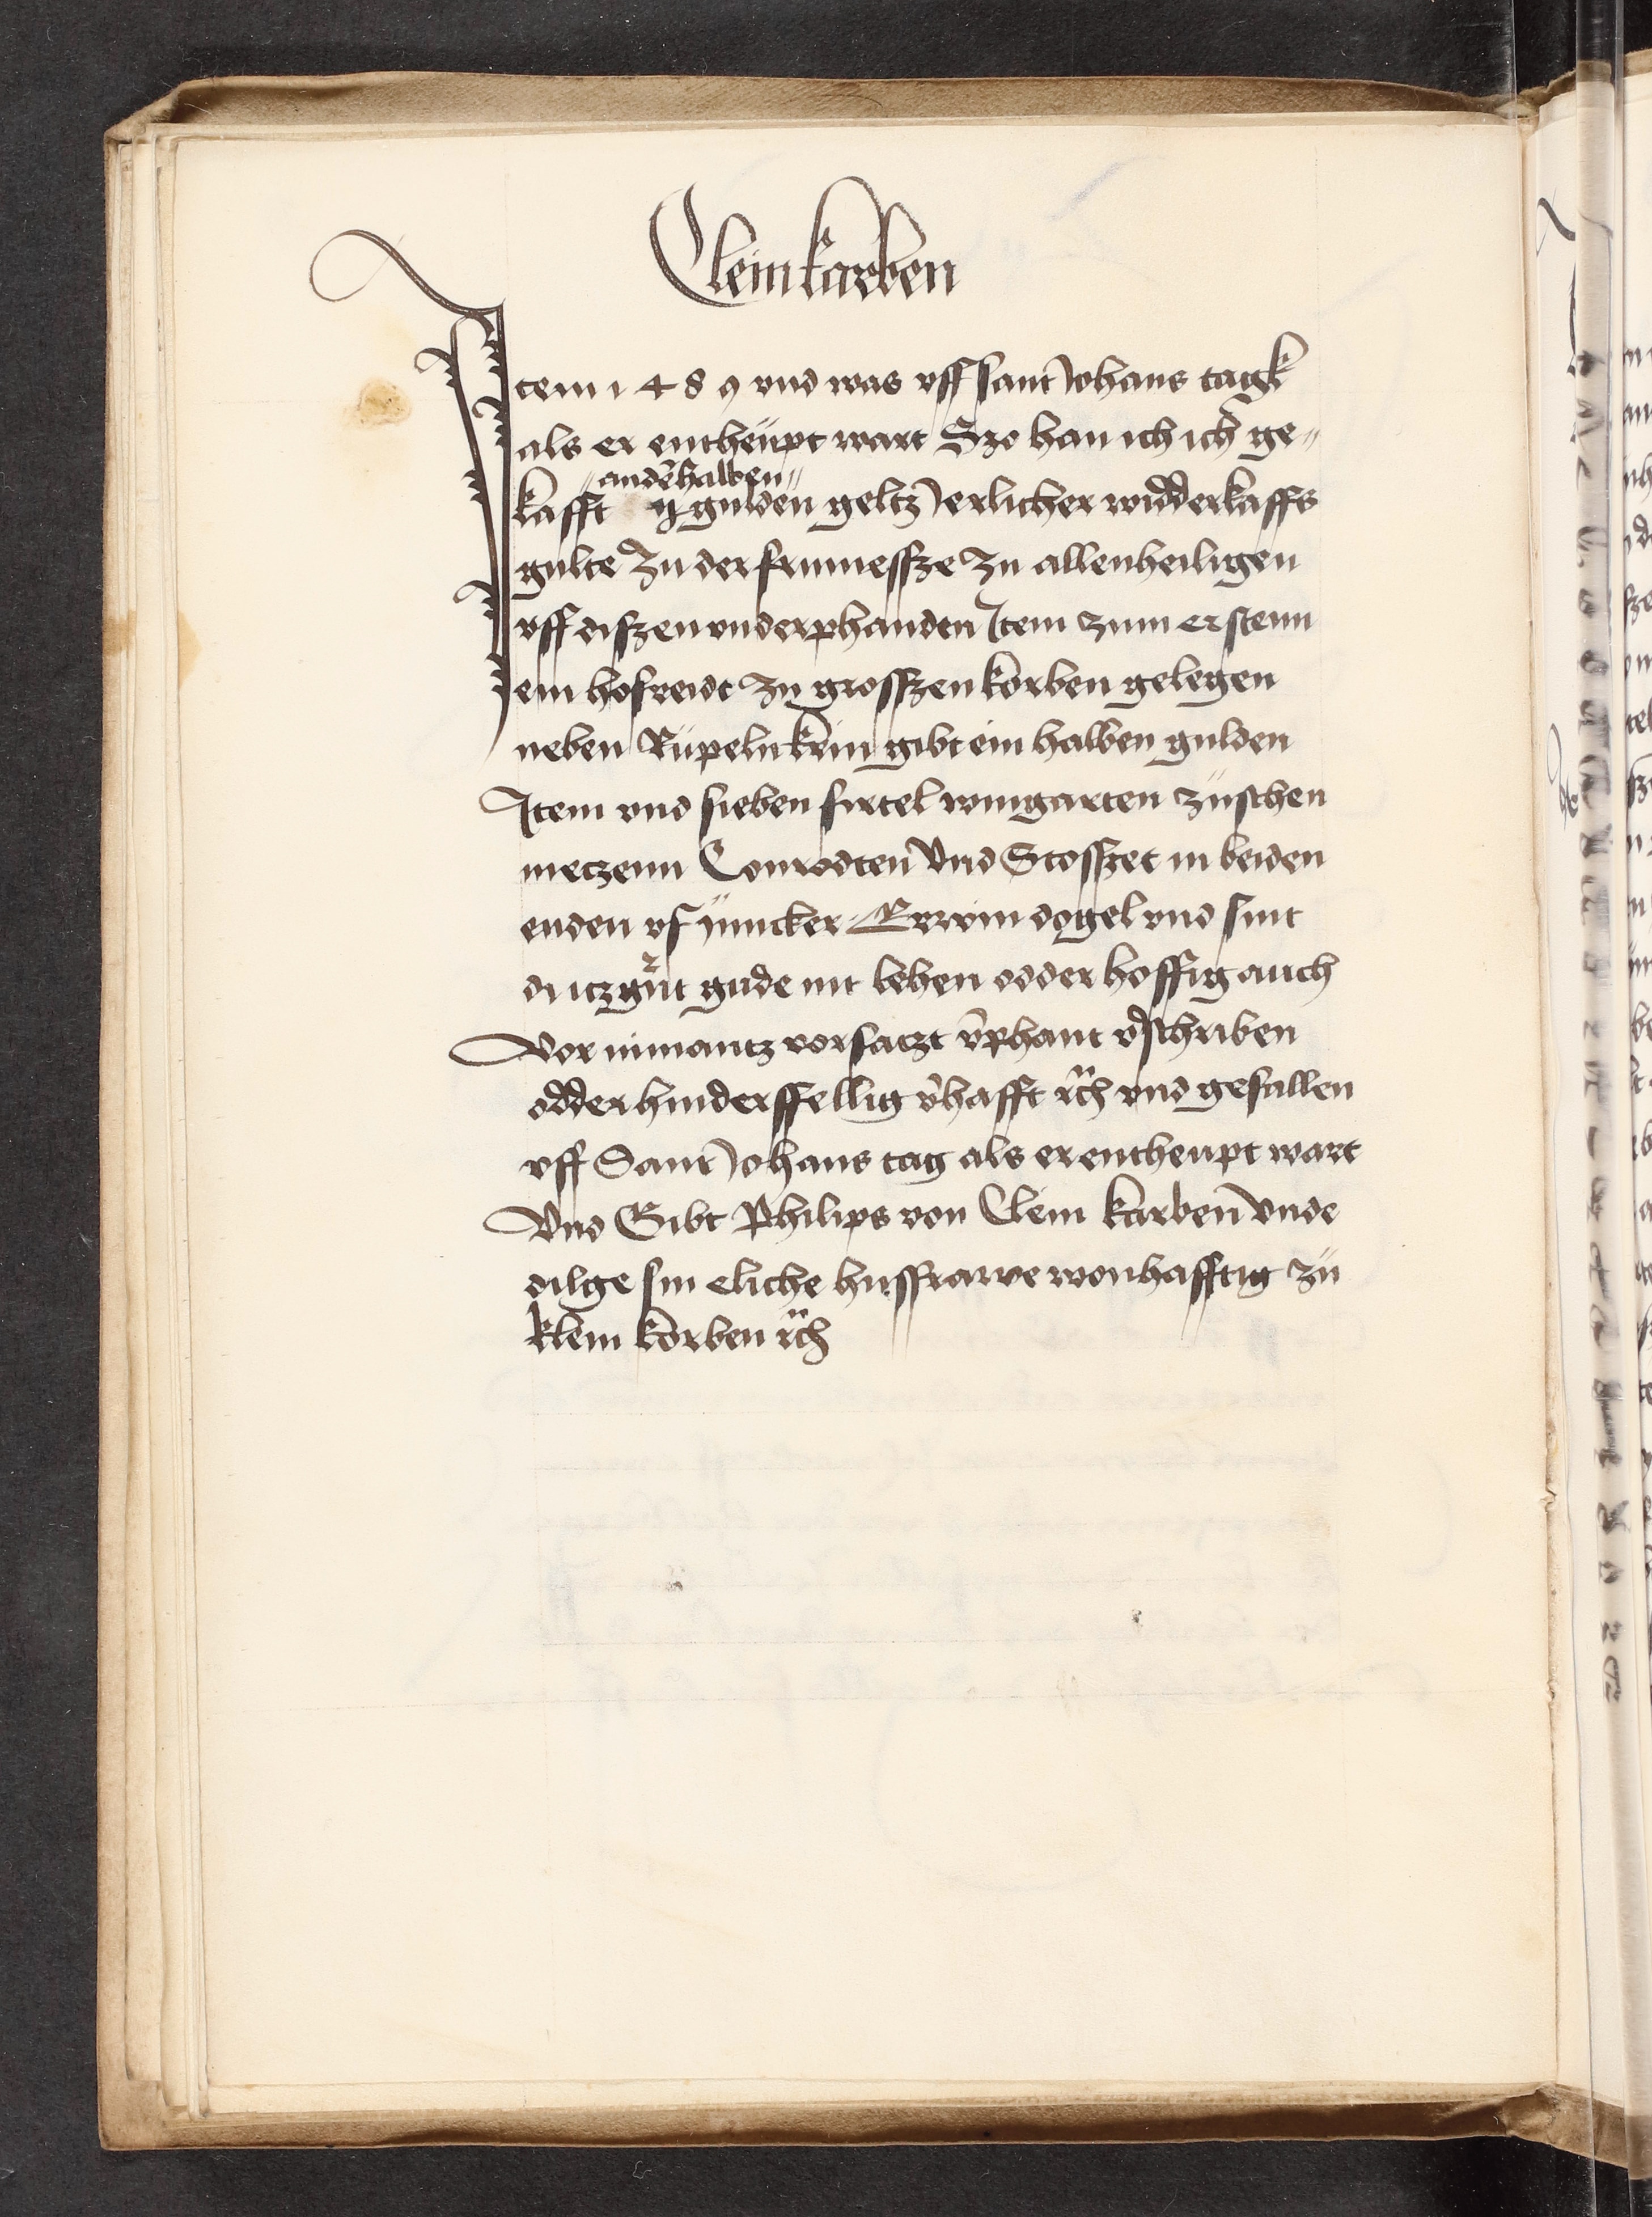 Clein karben
Item 1489 vnd was vff sant Johans tagk
als er entheüpt wart Szo han ich ich ge„
„andēhalben„
kafft ij gulden geltz Jerlicher widderkaffs
gulte Zu der frumessze Zu allenheiligen
vff diszen vnderphandtn Item zum erstenn
ein hofreidt Zu grosszen korben gelegen
neben Rüpeln krein gibt ein halben gulden
Item vnd sieben firtel wingarten züschen
meczenn Conrodten Vnd Stosszet in beiden
enden vf jüncker Erwin dogel vnd sint
ditz güt gude nit lehen odder hoffig auch
Vor nimantz vorsaczt v̄phant v̄schriben
odder hinderffellig v̄hafft rc̃ vnd gefallen
vff Sant Johans tag als er entheupt wart
Vnd Gibt Philips von Clein karben vnde
dilge sin eliche husffrawe wonhafftig zü
klein korben rc̃